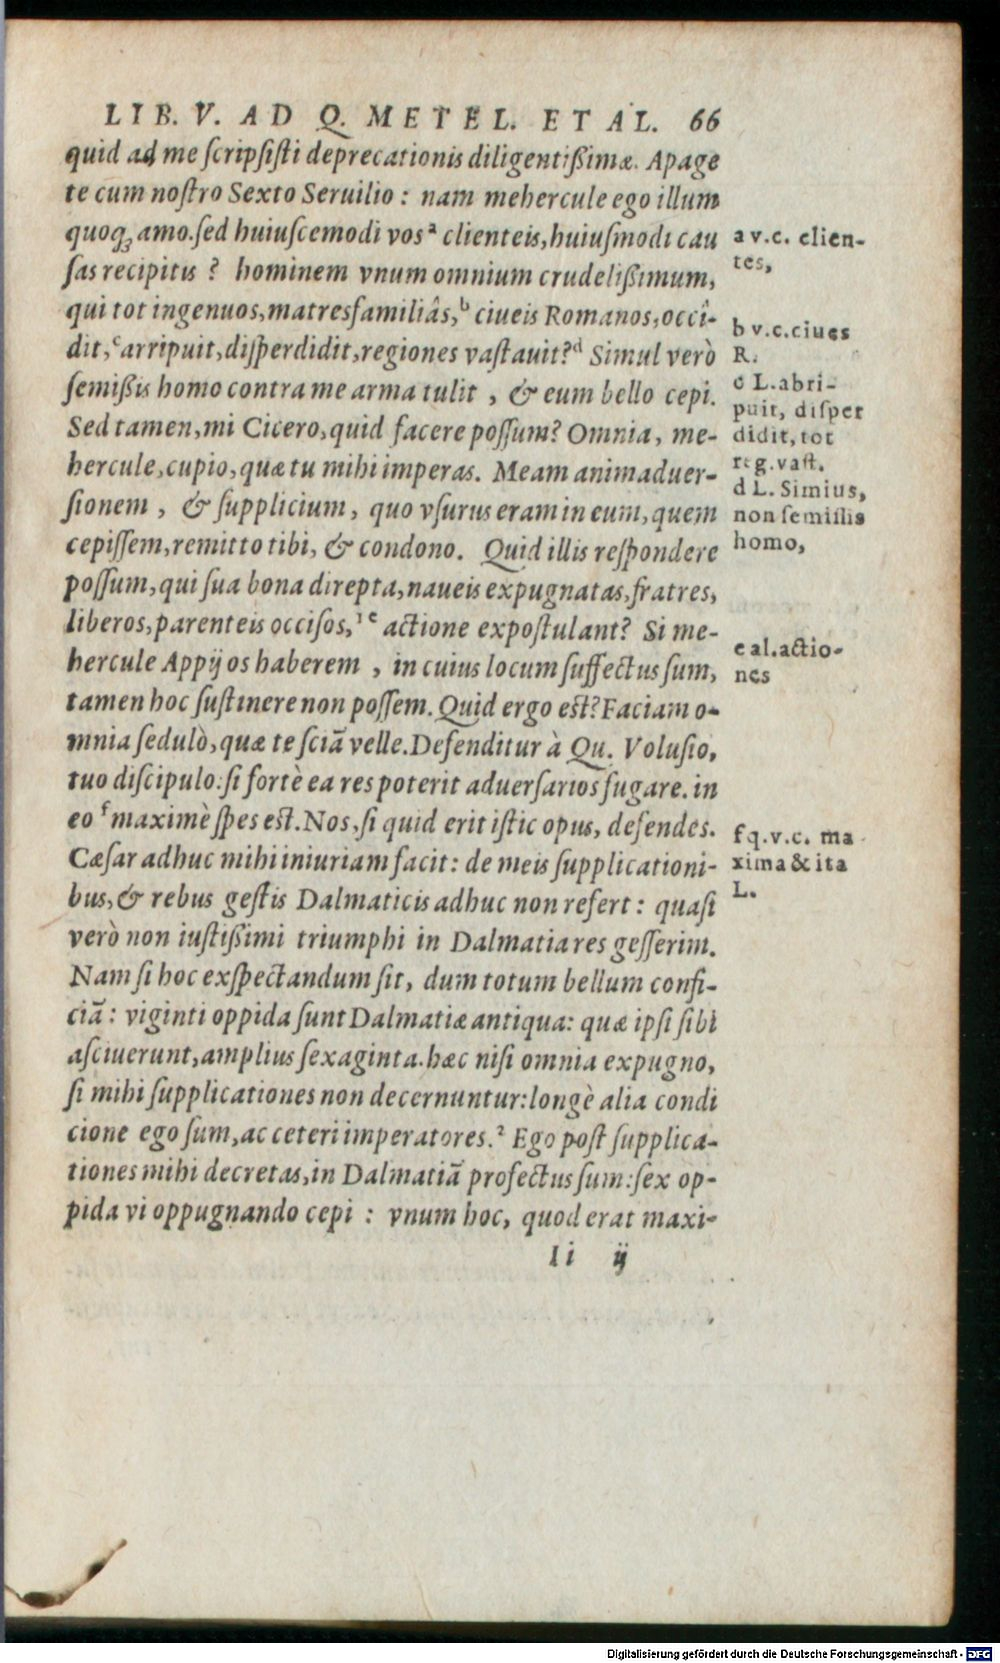 LIB. V. AD Q. METEL. ET AL. 66
quid ad me ſcripſiſti deprecationis diligentißimæ. Apage
te cum noſtro Sexto Seruilio : nam mehercule ego illum
quoq; amo. ſed huiuſcemodi vos ª clienteis, huiuſmodi cau
ſas recipitis ? hominem vnum omnium crudelißimum,
qui tot ingenuos, matresfamiliâs, ᵇ ciueis Romanos, occî-
dit, ᶜ arripuit, diſperdidit, regiones vaſtauit? ᵈ Simul verò
ſemißis homo contra me arma tulit , & eum bello cepi.
Sed tamen, mi Cicero, quid facere poſſum? Omnia, me-
hercule, cupio, quæ tu mihi imperas. Meam animaduer-
ſionem , & ſupplicium, quo vſurus eram in eum, quem
cepiſſem, remitto tibi, & condono. Quid illis reſpondere
poſſum, qui ſua bona direpta, naueis expugnatas, fratres,
liberos, parenteis occiſos, ¹ ᵉ actione expoſtulant? Si me-
hercule Appij os haberem , in cuius locum ſuffectus ſum,
tamen hoc ſuſtinere non poſſem. Quid ergo eſt? Faciam o-
mnia ſedulò, quæ te ſciā velle. Defenditur à Qu. Voluſio,
tuo diſcipulo: ſi fortè ea res poterit aduerſarios fugare. in
eo ᶠ maximè ſpes eſt. Nos, ſi quid erit iſtic opus, defendes.
Cæſar adhuc mihi iniuriam facit : de meis ſupplicationi-
bus, & rebus geſtis Dalmaticis adhuc non refert : quaſi
verò non iuſtißimi triumphi in Dalmatia res geſſerim.
Nam ſi hoc exſpectandum ſit, dum totum bellum confi-
ciā : viginti oppida ſunt Dalmatiæ antiqua : quæ ipſi ſibi
aſciuerunt, amplius ſexaginta. hæc niſi omnia expugno,
ſi mihi ſupplicationes non decernuntur: longè alia condi
cione ego ſum, ac ceteri imperatores. ² Ego poſt ſupplica-
tiones mihi decretas, in Dalmatiā profectus ſum: ſex op-
pida vi oppugnando cepi : vnum hoc, quod erat maxi-
Ii ij
a v.c. clien-
tes,
b v.c. ciues
R.
c L. abri-
puit, diſper
didit, tot
reg. vaſt.
d L. Simius,
non ſemiſſis
homo,
e al. actio-
nes
f q.v.c. ma
xima & ita
L.
Digitalisierung gefördert durch die Deutsche Forschungsgemeinschaft - DFG